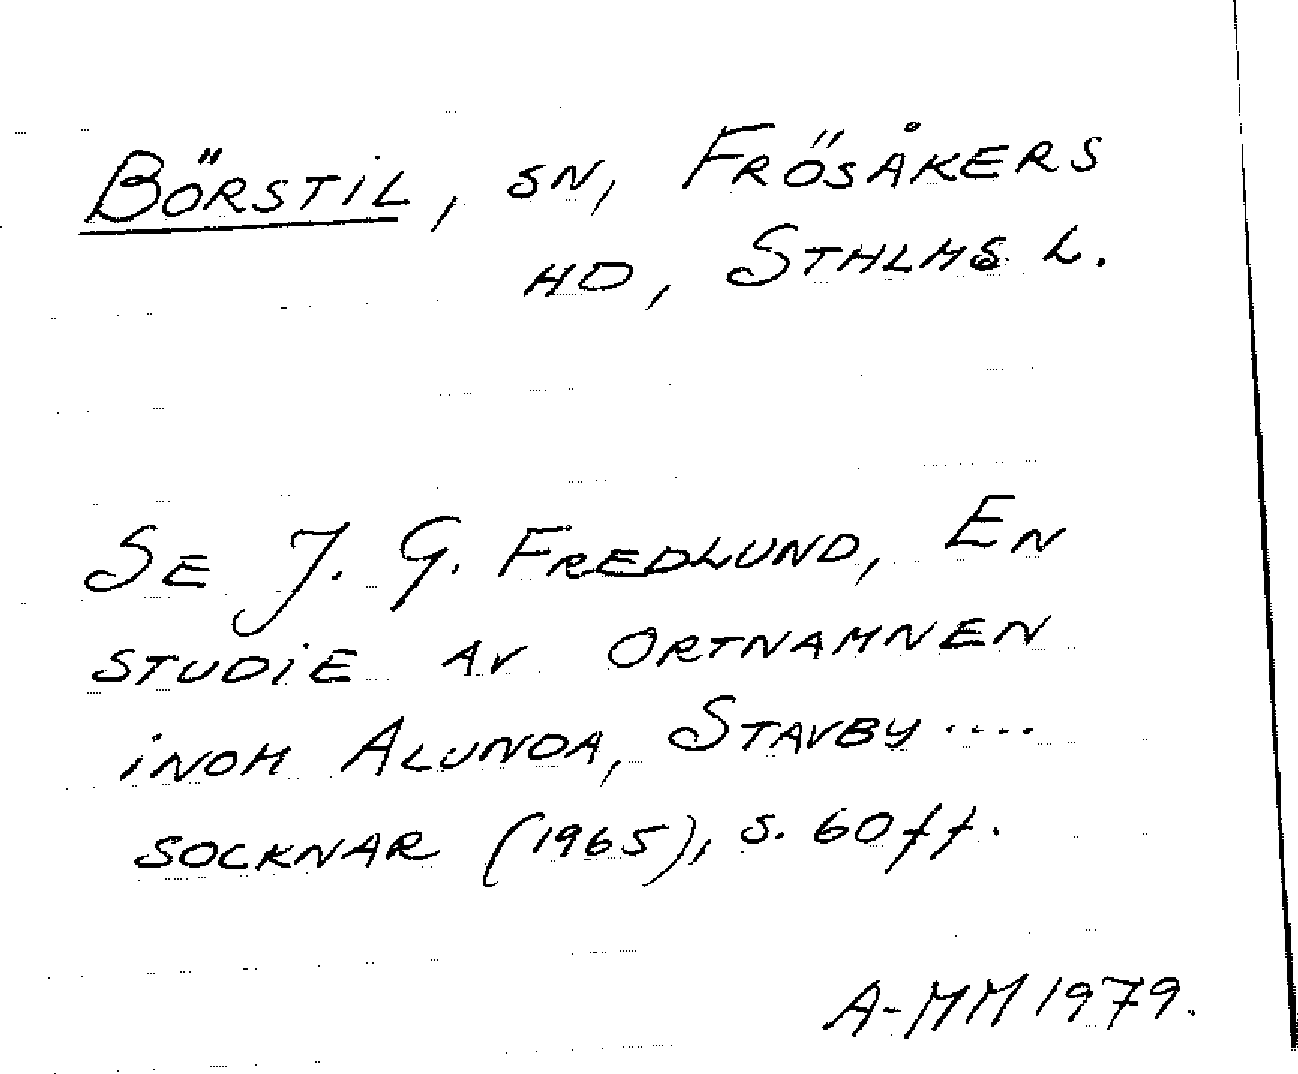 Börstil, sn, Frösåkers
hd, Sthlms l.
Se J. G. Fredlund, En
studie av ortnamnen
inom Alunda, Stavby .....
socknar (1965), s. 60 ff.
A-MM 1979.